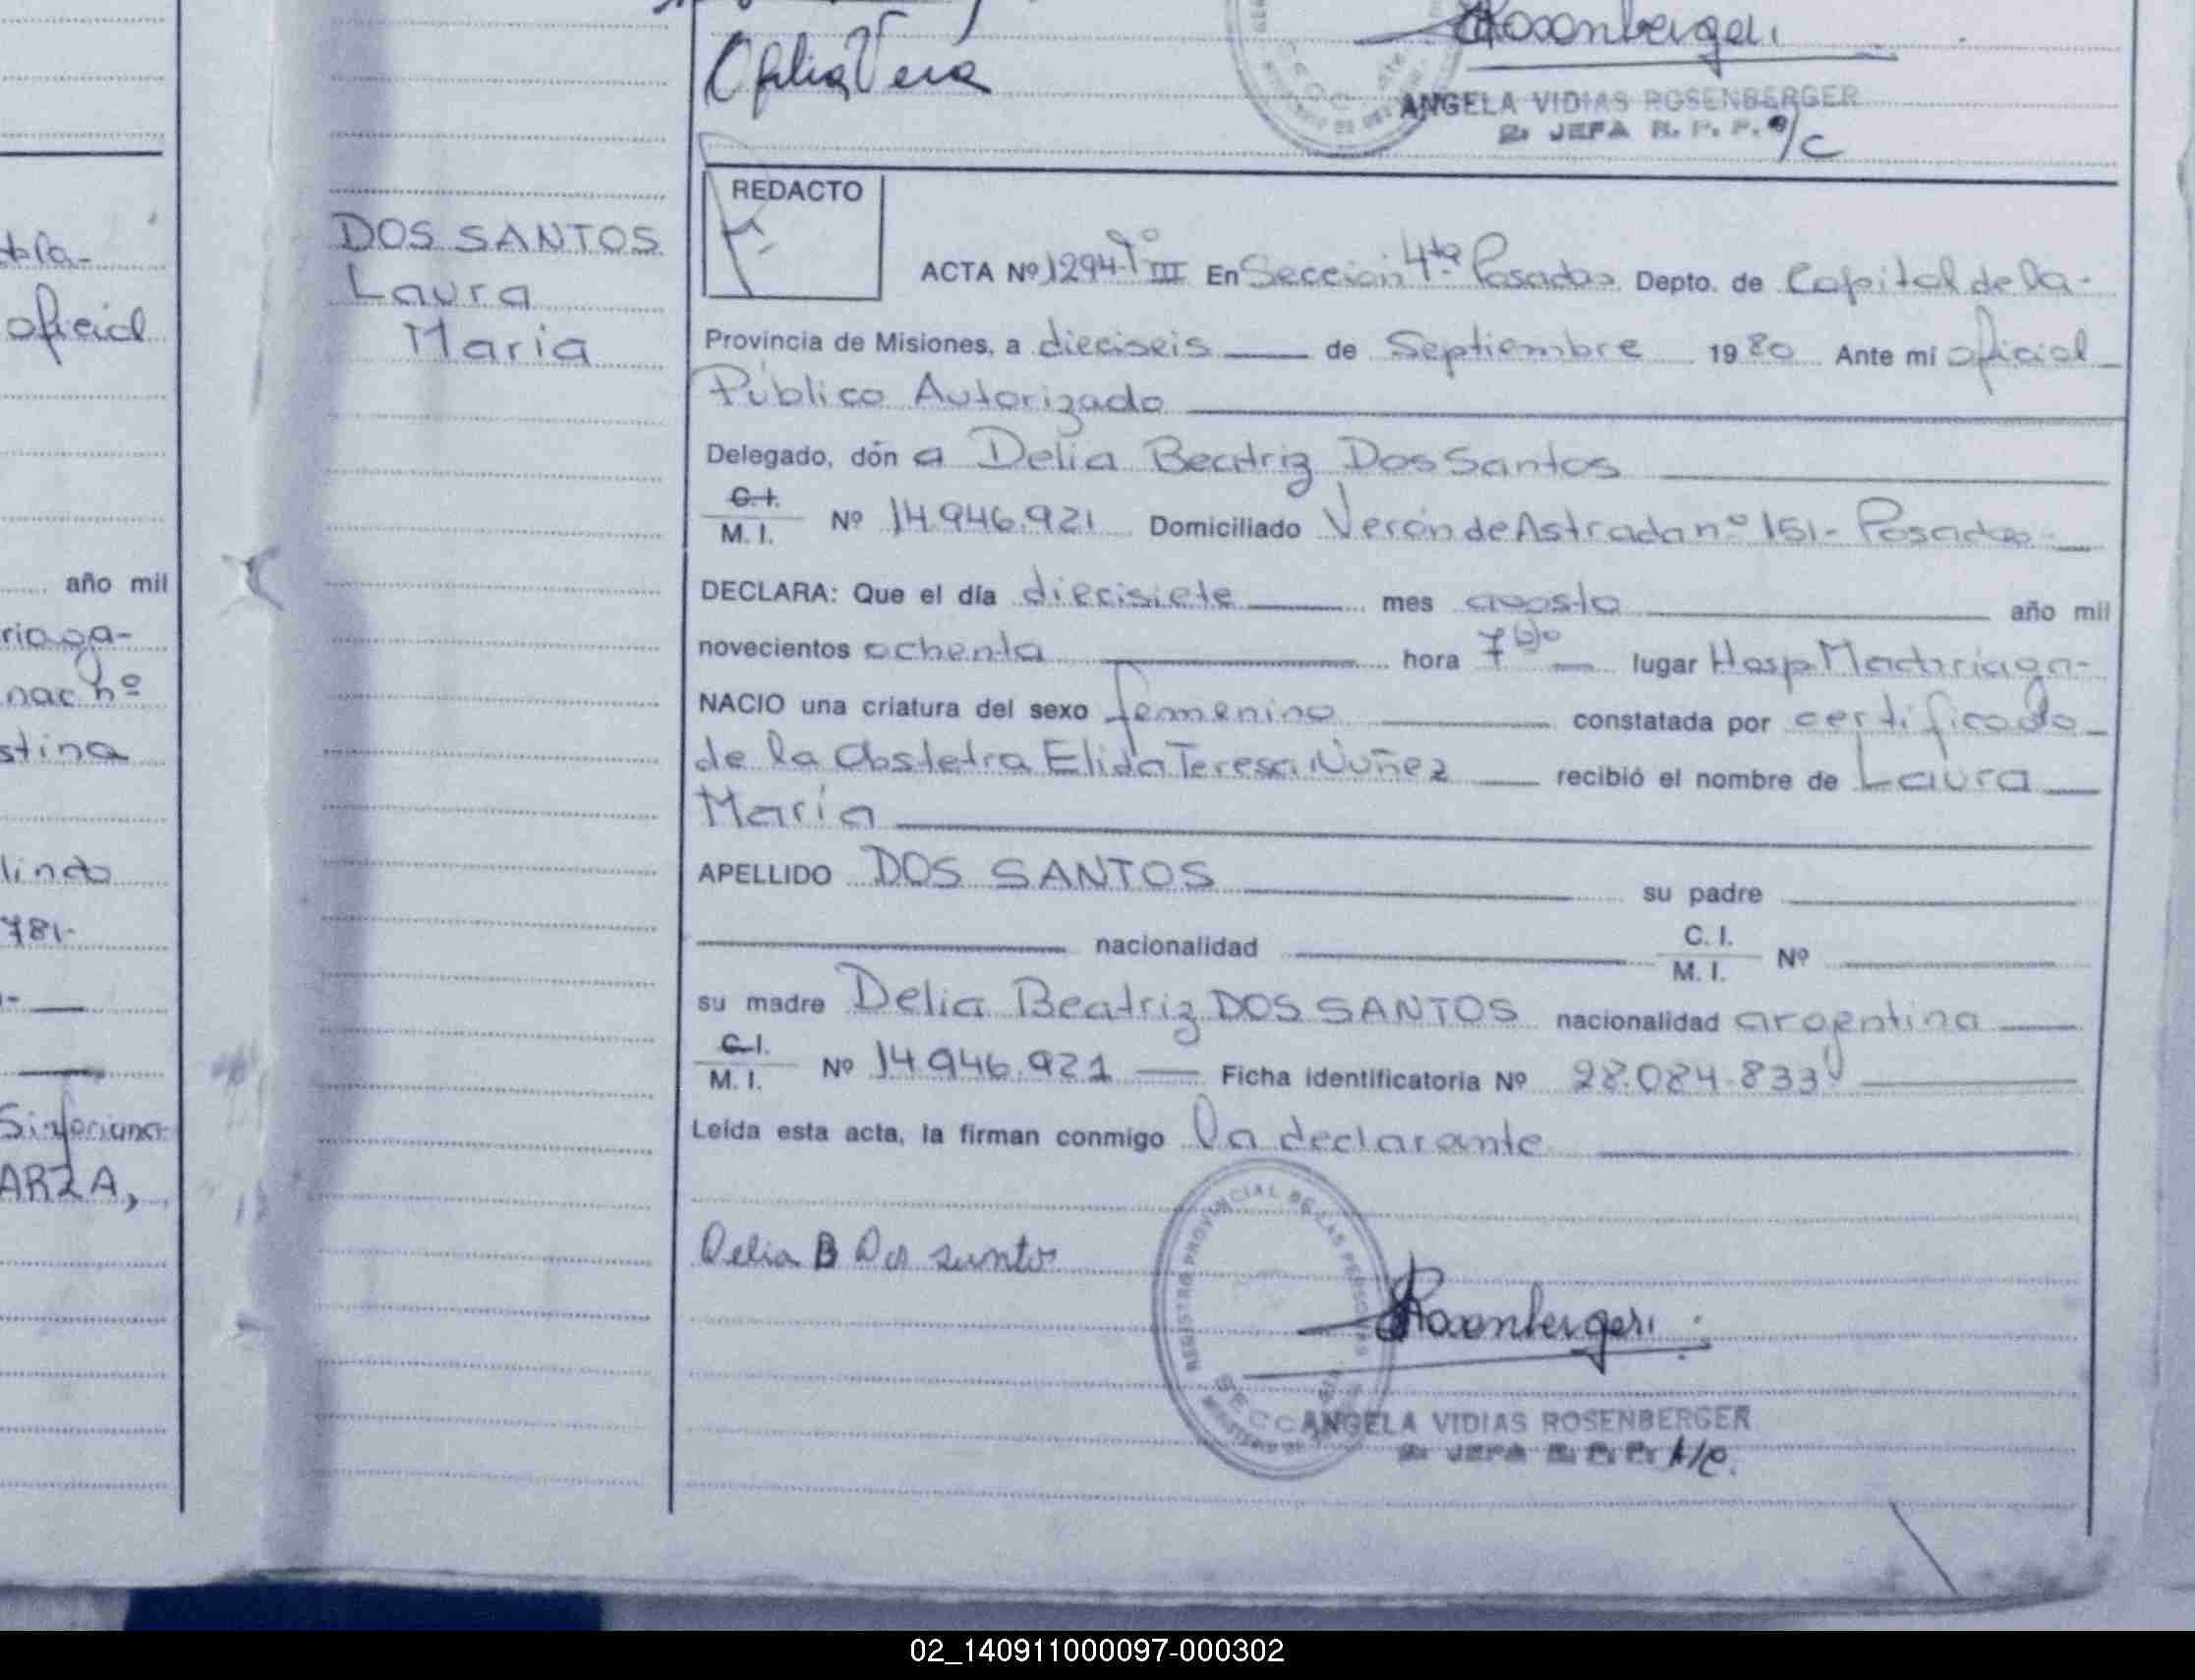 Ofelia Vera
Rosenberger
ANGELA VIDIAS ROSENBERGER
2. JEFA R. P. P. a/c
REDACTO
DOS SANTOS
Laura
María
ACTA Nº 1294-Tº III En Sección 4ta Posadas Depto. de Capital de la-
Provincia de Misiones, a dieciseis de Septiembre 1980 Ante mí oficial
Público Autorizado
Delegado, don a Delia Beatriz Dos Santos
C.I.
M. I. Nº 14.946.921 Domiciliado Verón de Astrada nº 151- Posadas
DECLARA: Que el día diecisiete mes agosto año mil
novecientos ochenta hora 7 lugar Hosp Madariaga-
NACIO una criatura del sexo femenino constatada por certificado
de la Obstetra Elida Teresa Nuñez recibió el nombre de Laura
María
APELLIDO DOS SANTOS su padre
nacionalidad C. I.
M. I. Nº
su madre Delia Beatriz DOS SANTOS nacionalidad argentina
C.I.
M. I. Nº 14.946.921 Ficha identificatoria Nº 28.084.833
Leída esta acta, la firman conmigo la declarante
REGISTRO PROVINCIAL DE LAS PERSONAS
Delia B Dos santos
Rosenberger
ANGELA VIDIAS ROSENBERGER
2. JEFA R. P. P. A/C.
oficial
año mil
riaga-
nac nº
stina
lindo
781-
Sinforiana
ARZA,
02_140911000097-000302